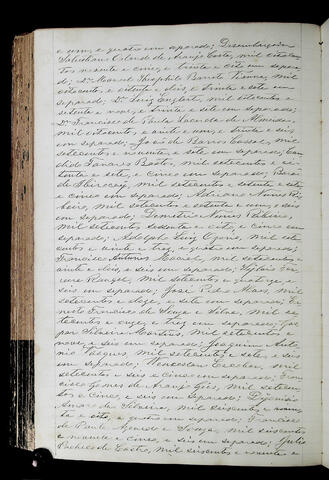 e um, e quatro em separado; Desembargador
Salustiano Orlando de Araujo Costa, mil oitocen-
tos noventa e cinco, e trinta e oito em separa-
do; Dr. Manoel Theophilo Barreto Vianna, mil
oitocentos e oitenta e dois, e trinta e sete em
separado; Dr. Luiz Englert, mil oitocentos e
setenta e nove, e trinta e sete em separado;
Dr. Francisco de Paula Lacerda de Almeida,
mil oitocentos e vinte e um, e trinta e seis
em separado; João de Barros Cassal, mil
setecentos e noventa e sete em separado;
Tavares Bastos, mil setecentos e se-
tenta e sete, e cinco em separado; Barão
de Ibirocay, mil setecentos e setenta e sete
e cinco em separado; Nunes Ri-
beiro, mil setecentos e setenta e um, e seis
em separado; Demetrio Nunes Ribeiro,
mil setecentos sessenta e oito, e cinco em
separado; Adolpho Luiz Osorio, mil sete-
centos e vinte e tres, e quatro em separado;
Francisco Antunes Maciel, mil setecentos e
vinte e dois, e seis em separado; Possi-
Rangel, mil setecentos e quatorze, e
seis em separado; José Pedro Alves, mil
setecentos e doze, e sete em separado; Er-
nesto Francisco de Souza e Silva, mil se-
tecentos e onze, e tres em separado; Gas-
par Silveira Martins, mil setecentos e
nove, e seis em separado; Joaquim Anto-
nio Vasques, mil setecentos e sete, e seis
em separado; Wenceslau Escobar, mil
setecentos e seis e cinco em separado; Fran-
cisco Gomes de Araujo Góes, mil setecen-
tos e cinco, e seis em separado; Dioguin
Amaro da Silveira, mil seiscentos e noven-
ta e oito, e quatro em separado; Francisco
de Paula Azevedo e Souza, mil seiscentos
e noventa e cinco, e seis em separado; Julio
Pacheco de Castro, mil seiscentos e noventa e